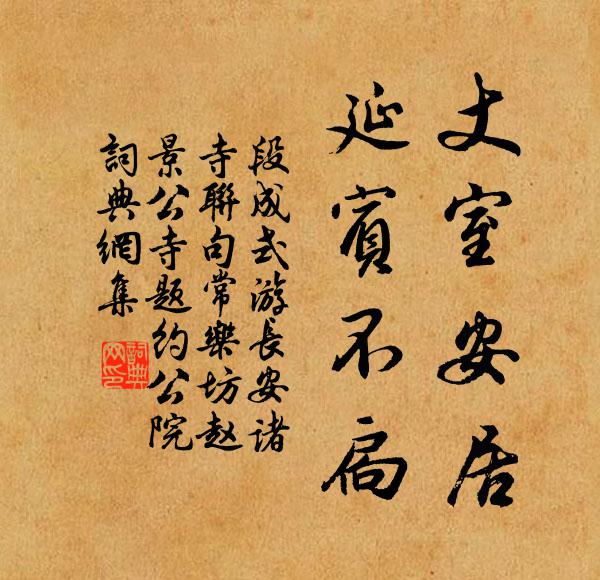 丈室安居
延賓不扃
段成式游長安諸
寺聯句常樂坊赵
景公寺題約公院
詞典網集
詞典網印